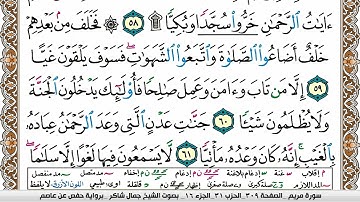 ءَايَٰتُ ٱلرَّحْمَٰنِ خَرُّوا۟ سُجَّدًا وَبُكِيًّا ۩ ٥٨ فَخَلَفَ مِنۢ بَعْدِهِمْ
خَلْفٌ أَضَاعُوا۟ ٱلصَّلَوٰةَ وَٱتَّبَعُوا۟ ٱلشَّهَوَٰتِ ۖ فَسَوْفَ يَلْقَوْنَ غَيًّا
٥٩ إِلَّا مَن تَابَ وَءَامَنَ وَعَمِلَ صَٰلِحًا فَأُو۟لَٰٓئِكَ يَدْخُلُونَ ٱلْجَنَّةَ
وَلَا يُظْلَمُونَ شَيْـًٔا ٦٠ جَنَّٰتِ عَدْنٍ ٱلَّتِى وَعَدَ ٱلرَّحْمَٰنُ عِبَادَهُۥ
بِٱلْغَيْبِ ۚ إِنَّهُۥ كَانَ وَعْدُهُۥ مَأْتِيًّا ٦١ لَّا يَسْمَعُونَ فِيهَا لَغْوًا إِلَّا سَلَٰمًا ۖ
سورة مريم الصفحة ٣٠٩ الحزب ٣١ الجزء ١٦ بصوت الشيخ جمال شاكر برواية حفص عن عاصم